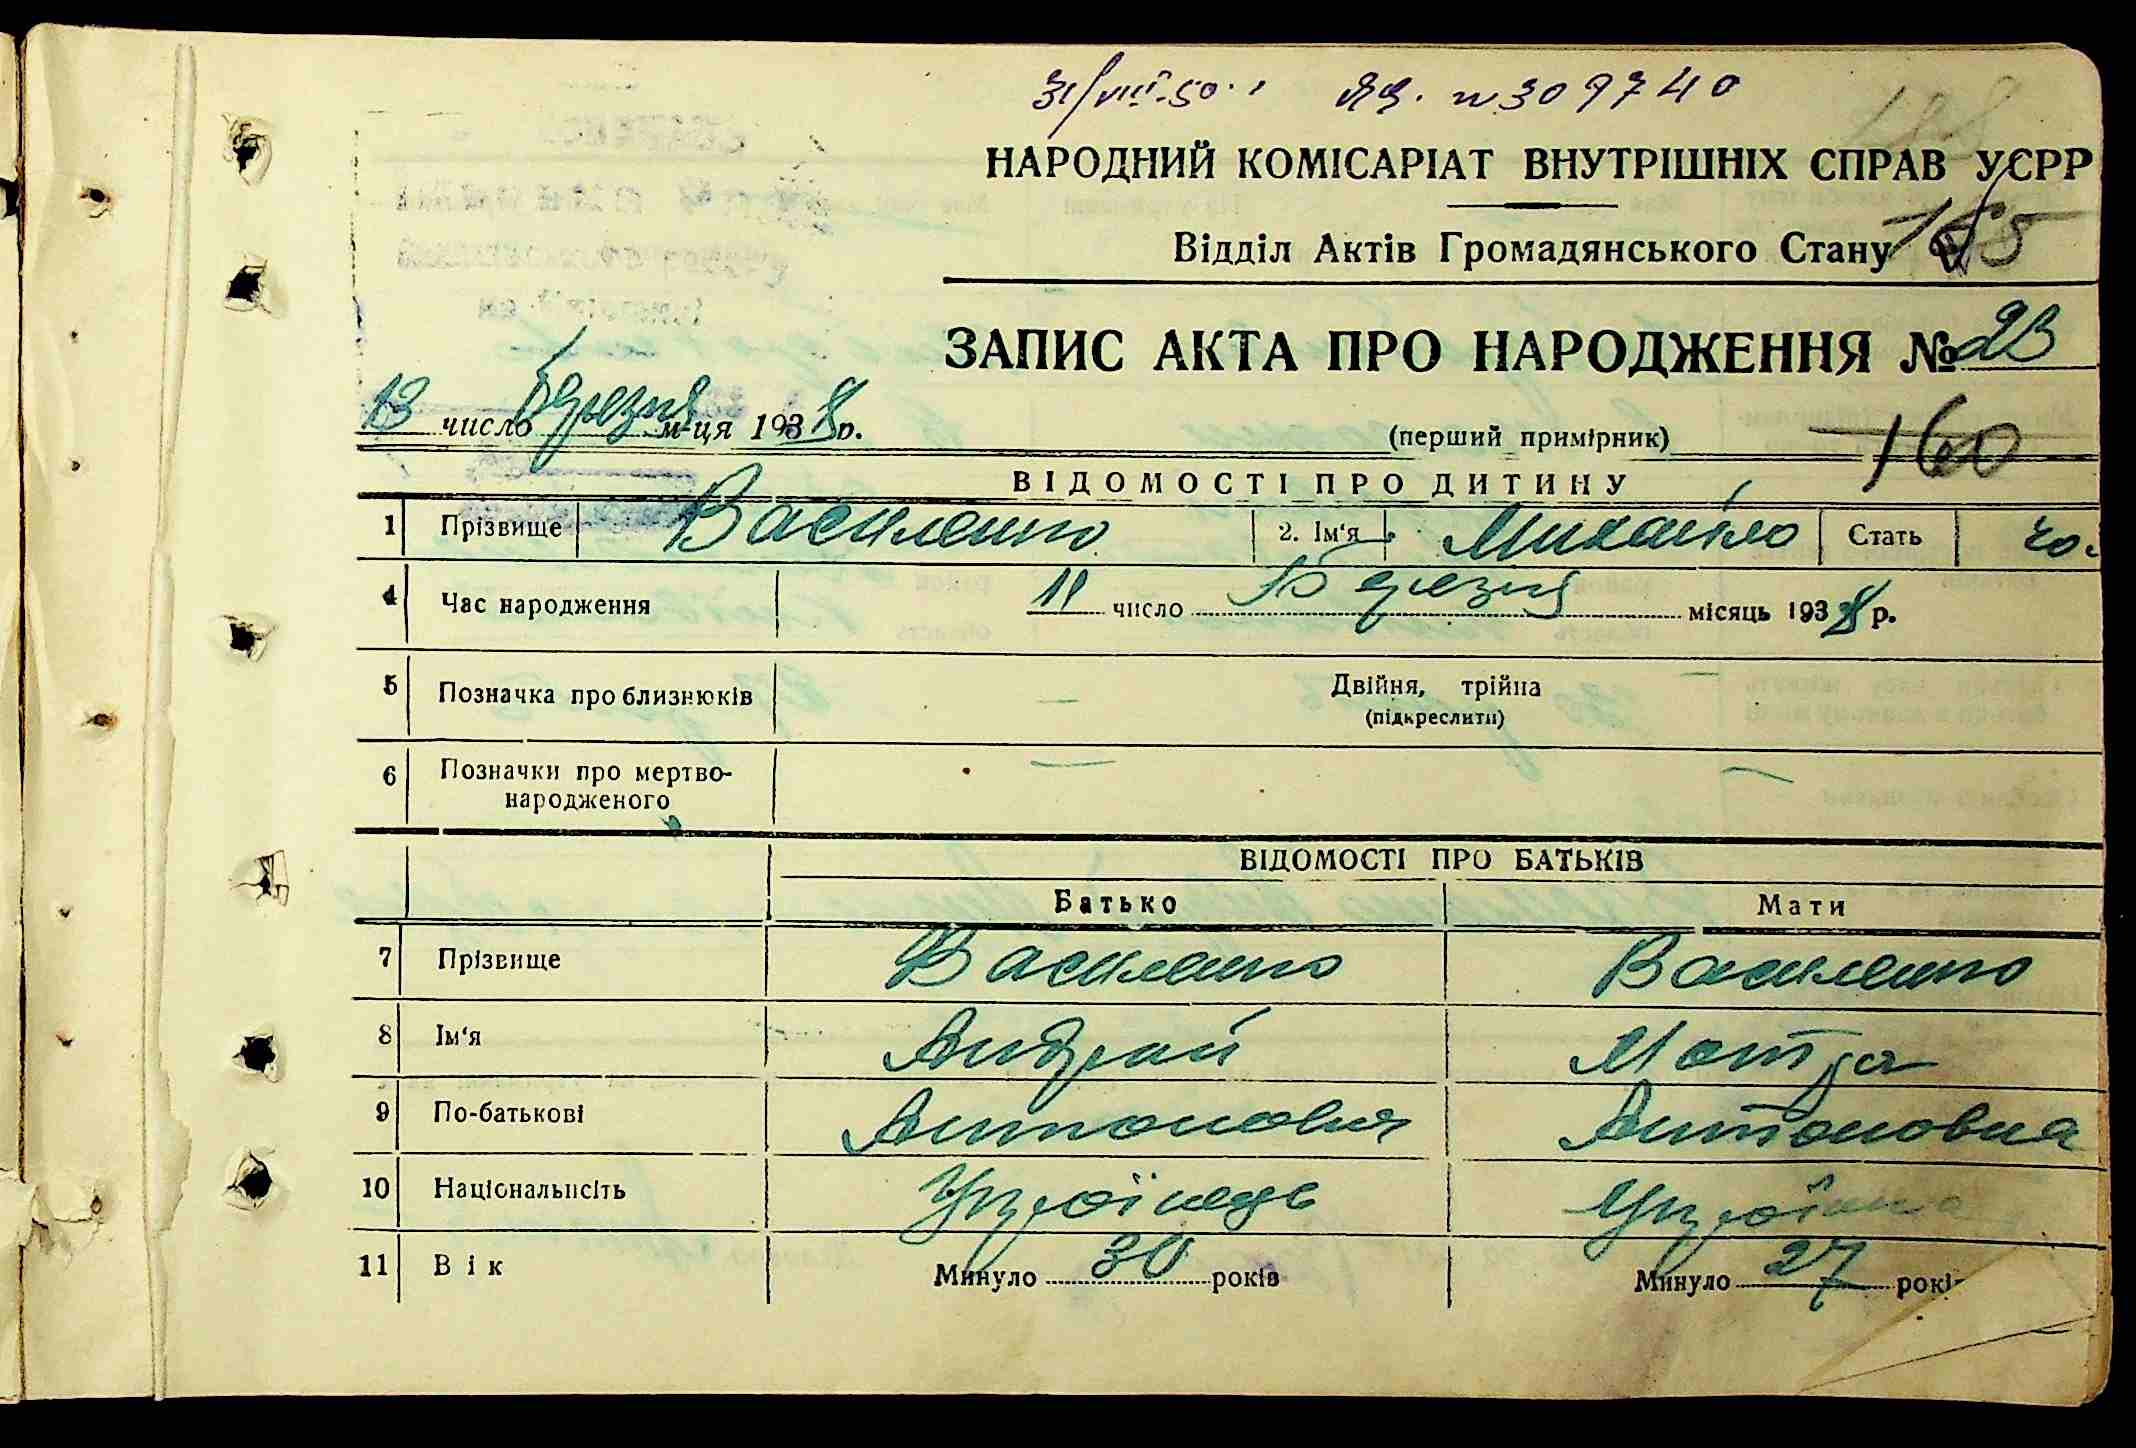 31/VIII-50. ЯЦ. № 309740
НАРОДНИЙ КОМІСАРІАТ ВНУТРІШНІХ СПРАВ УСРР
Відділ Актів Громадянського Стану
ЗАПИС АКТА ПРО НАРОДЖЕННЯ № 23
13 число Березня м-ця 1938 р.
(перший примірник) 160
ВІДОМОСТІ ПРО ДИТИНУ
1 Прізвище Василенко 2. Ім'я Михайло Стать чо.
4 Час народження 11 число Березня місяць 1938 р.
5 Позначка про близнюків — Двійня, трійна —
(підкреслити)
6 Позначки про мертво- — —
народженого
ВІДОМОСТІ ПРО БАТЬКІВ
Батько Мати
7 Прізвище Василенко Василенко
8 Ім'я Андрей Мотря
9 По-батькові Антонович Антоновна
10 Національність Українець Українка
11 Вік Минуло 30 років Минуло 27 рокі